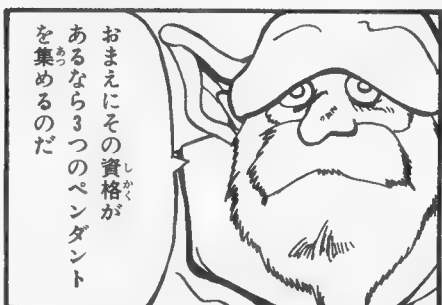 おまえにその資格が
あるなら3つのペンダント
を集めるのだ